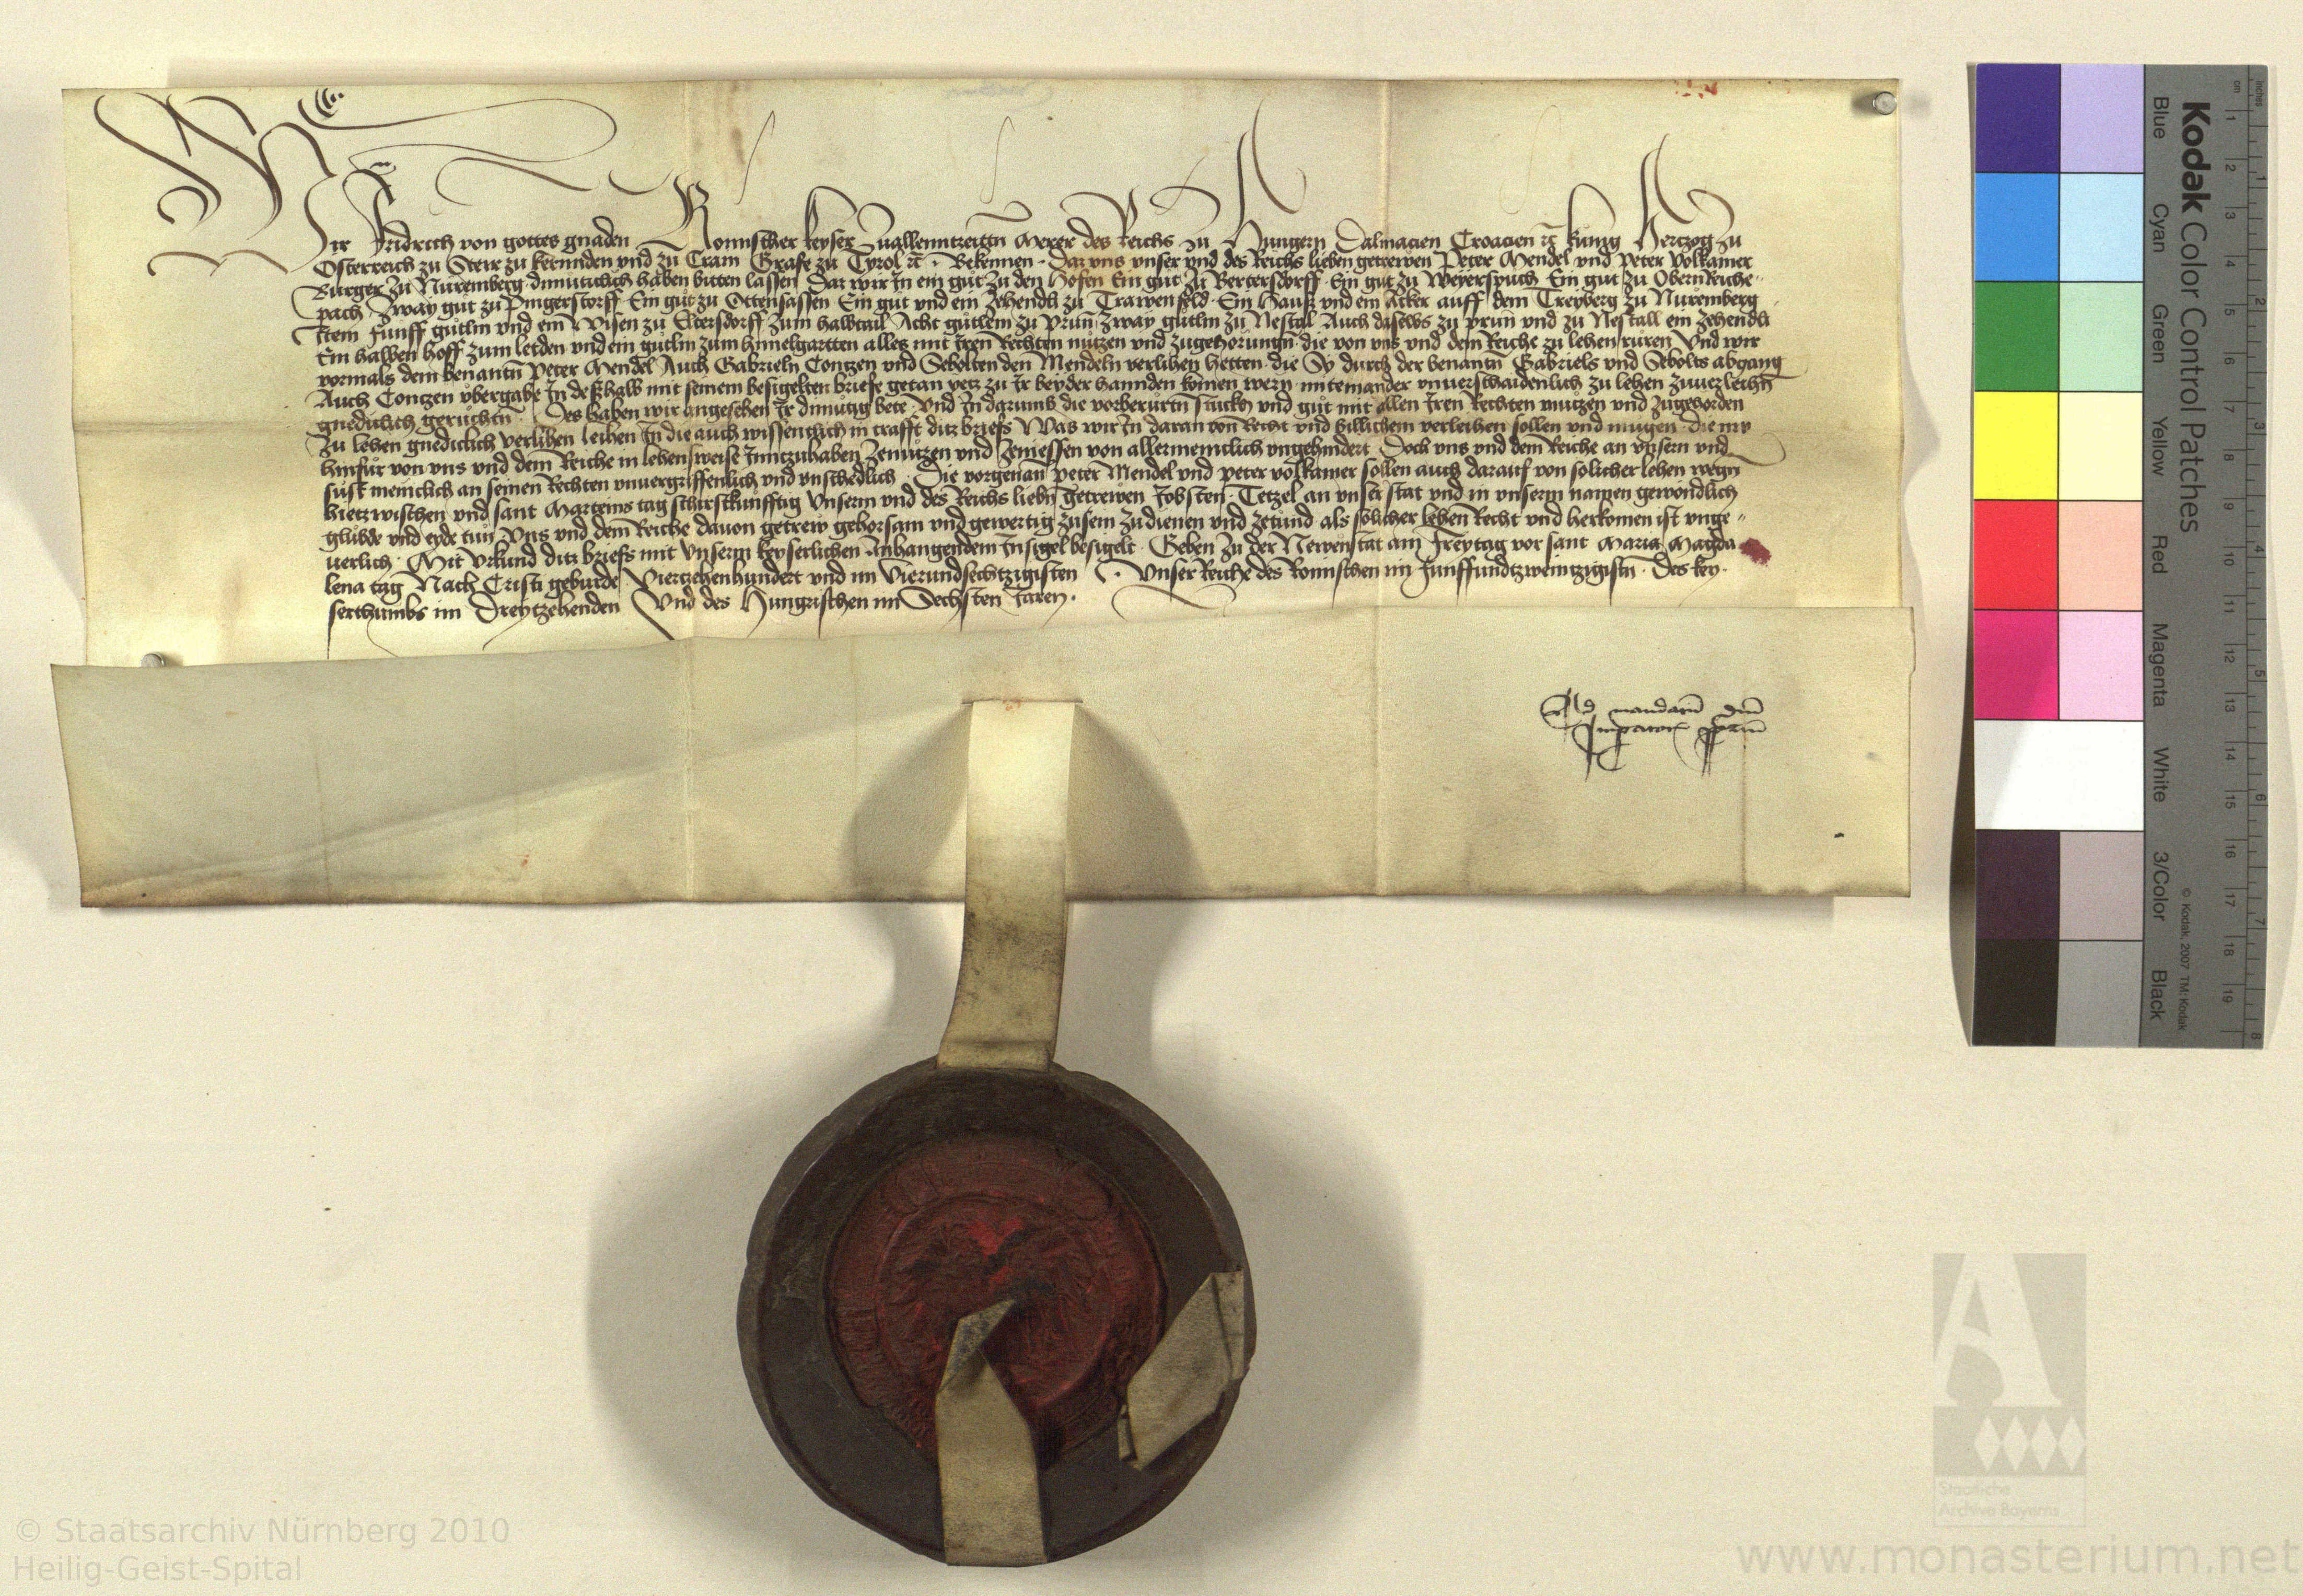 Wir Fridrich von gottes gnaden Romischer keyser zuallenntzeittn Merer des Reichs zu Hungern Dalmacien Croacien rc kunig Hertzog zu
Osterreich zu Steir zu kernnden vnd zu Crain Grafe zu Tyrol rc · Bekennen · Daz vns vnser vnd des Reichs lieben getrewen Peter Mendel vnd Peter Volkamer
Burger zu Nuremberg diemuticlich haben bitten lassen Daz wir In ein gut zu den Hofen Ein gut zu Bertersdorff · Ein gut zu Weyerspuch Ein gut zu Obernreiche-
pach zway gut zu Pingerstorff · Ein gut zu Ottensassen Ein gut vnd ein zehendli zu Trawenfeld · Ein Hauß vnd ein Acker auff dem Treyberg zu Nuremberg
Item funff gütlin vnd ein Wisen zu Eltersdorff zum halbtail Acht gütlein zu Prun zway gütlin zu Nestal Auch daselbs zu prun vnd zu Nestall ein zehendli
Ein halben hoff zum leiden vnd ein gütlin zum himelgartten alles mit Iren Rechten nützen vnd zugehorungn die von vns vnd dem Reiche zu lehen rüren Vnd wir
vormals dem benantn Peter Mendel Auch Gabrieln Contzen vnd Sebolten den Mendeln verlihen hetten die Sy durch der benantn Gabriels vnd Sebolts abgang
Auch Contzen vbergabe In deßhalb mit seinem besigelten briefe getan yetz zu Ir beyder hannden komen wern miteinander vnuerschaidenlich zu lehen zuuerleihn
gnediclich geruchtn · Des haben wir angesehen Ir dmütig bete · Vnd In darumb die vorberürtn stuckh vnd güt mit allen Iren Rechten nützen vnd zugehorden
zu lehen gnediclich verlihen leihen In die auch wissentlich in crafft ditz briefs Was wir In daran von Recht vnd billichem verleihen sollen vnd mugen · Die nw
hinfür von vns vnd dem Reiche in lehensweise Inntzuhaben zenützen vnd zeniessen von allermeniclich vngehindert Doch vns vnd dem Reiche an vnsern vnd
sust meniclich an seinen Rechten vnuergriffenlich vnd vnschedlich · Die vorgenan Peter Mendel vnd peter volkamer sollen auch darauf von solicher lehen wegn
hietzwischen vnd sant Marteins tag schirstkünfftig Vnserm vnd des Reichs liebn getrewen Jobsten Tetzel an vnser stat vnd in vnserm namen gewondlich
glübde vnd eyde tun Vns vnd dem Reiche dauon getrew gehorsam vnd gewertig zusein zudienen vnd zetund als solicher lehen Recht vnd herkomen ist vnge-
uerlich · Mit Vrkund ditz briefs mit vnserm keyserlichen Anhangendem Insigel besigelt · Geben zu der Newenstat am Freytag vor sant Maria Magda
lena tag Nach Cristi geburde Viertzehenhundert vnd im Vierundsechtzigisten · Vnser Reiche des Romischen im Funffundtzweintzigistn · Des key-
serthumbs im Dreytzehenden Vnd des Hungrischen im Sechsten Jaren ·
Ad mandatu dni
Imperator ppriu
Kodak Color Control Patches
Blue Cyan Green Yellow Red Magenta White 3/Color Black
© Kodak, 2007 TM: Kodak
inches 1 2 3 4 5 6 7 8
cm 1 2 3 4 5 6 7 8 9 10 11 12 13 14 15 16 17 18 19
Staatliche
Archive Bayerns
© Staatsarchiv Nürnberg 2010
Heilig-Geist-Spital
www.monasterium.net